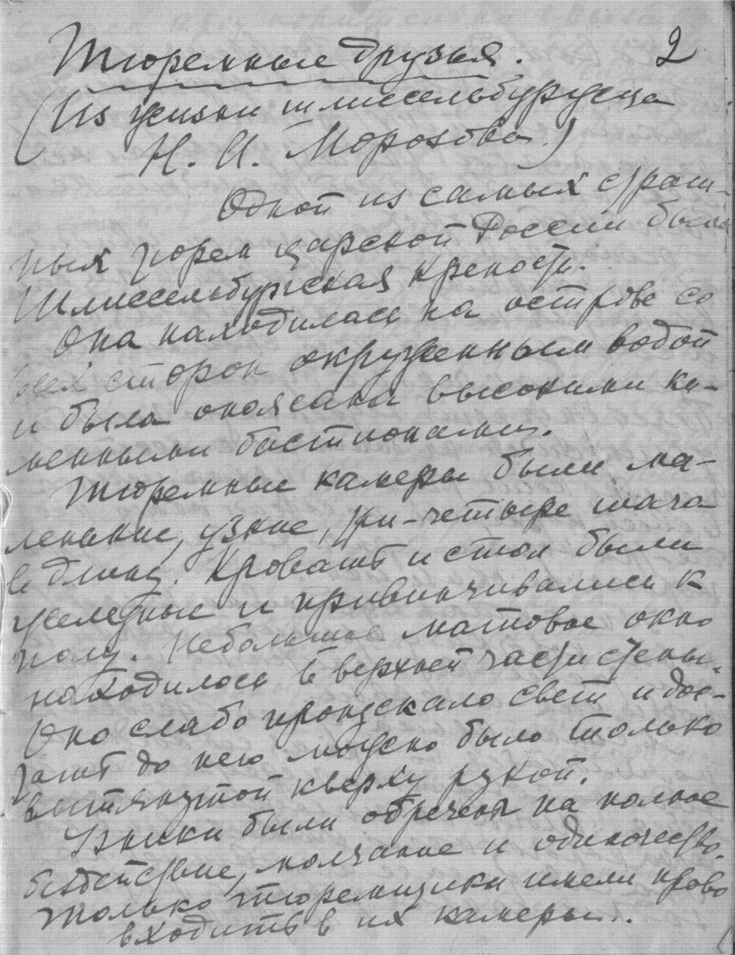 2
Тюремные друзья.
(Из жизни шлиссельбуржца
Н. А. Морозова.)
Одной из самых страш-
ных тюрем царской России была
Шлиссельбургская крепость.
Она находилась на острове со
всех сторон окруженным водой
и была опоясана высокими ка-
менными бастионами.
Тюремные камеры были ма-
ленькие, узкие, три-четыре шага
в длину. Кровать и стол были
железные и привинчивались к
полу. Небольшое матовое окно
находилось в верхней части стены.
Оно слабо пропускало свет и дос-
тать до него можно было только
вытянутой кверху рукой.
Узники были обречены на полное
бездействие, молчание и одиночество.
Только тюремщики имели право
входить в их камеры..